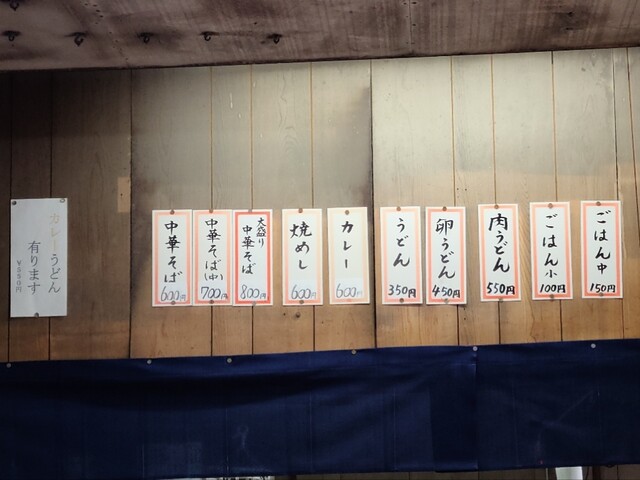 カレーうどん
有ります
¥550円
中華そば
600円
中華そば(中)
700円
大盛り
中華そば
800円
焼めし
600円
カレー
600円
うどん
350円
卵うどん
450円
肉うどん
550円
ごはん小
100円
ごはん中
150円